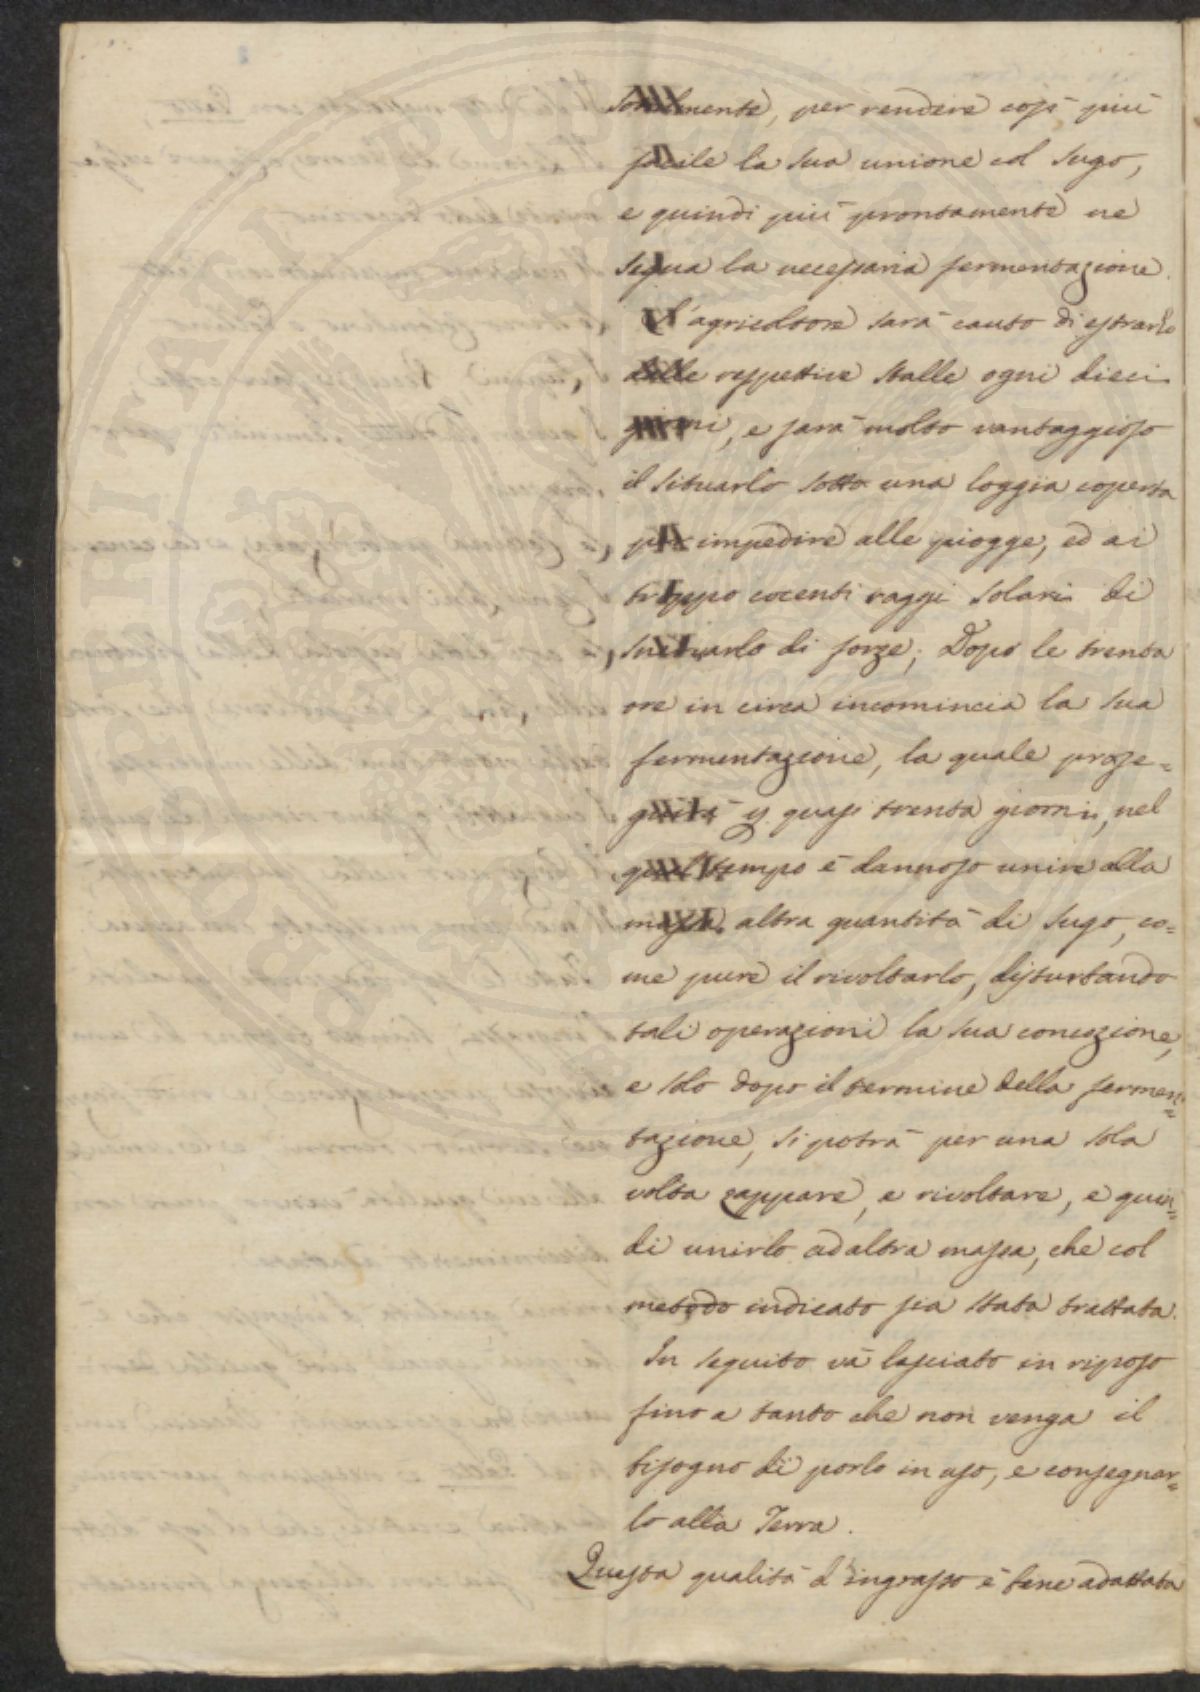 PROSPERITATI PUBLICAE
mente, per rendere così più
facile la sua unione col sugo,
e quindi più prontamente ne
segua la necessaria fermentazione.
L'agricoltore sarà cauto di estrarlo
dalle respettive stalle ogni dieci
giorni, e sarà molto vantaggioso
il situarlo sotto una loggia coperta
per impedire alle piogge, ed ai
troppo cocenti raggi solari di
snervarlo di forze; Dopo le trenta
ore in circa incomincia la sua
fermentazione, la quale prose=
guirà p. quasi trenta giorni, nel
qual tempo è dannoso unire alla
massa altra quantità di sugo, co=
me pure il rivoltarlo, disturbando
tali operazioni la sua concozione,
e solo dopo il termine della fermen=
tazione, si potrà per una sola
volta zappare, e rivoltare, e quin=
di unirlo ad altra massa, che col
metodo indicato sia stata trattata.
In seguito và lasciato in riposo
fino a tanto che non venga il
bisogno di porlo in uso, e consegnar=
lo alla Terra.
Questa qualità d'ingrasso è bene adattata